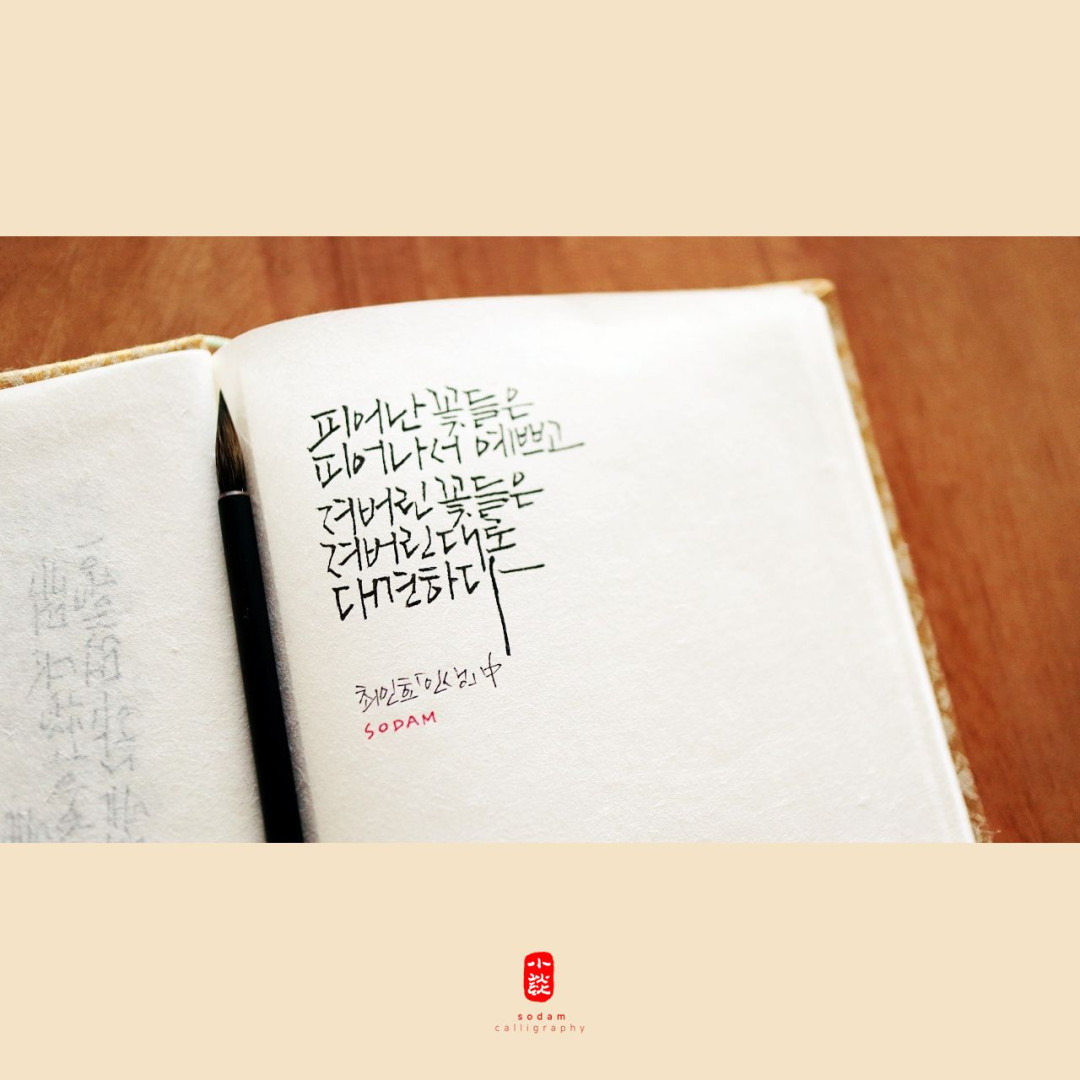 피어난 꽃들은
피어나서 예쁘고
져버린 꽃들은
져버린대로
대견하다
최인호「인생」中
SODAM
小談
sodam
calligraphy